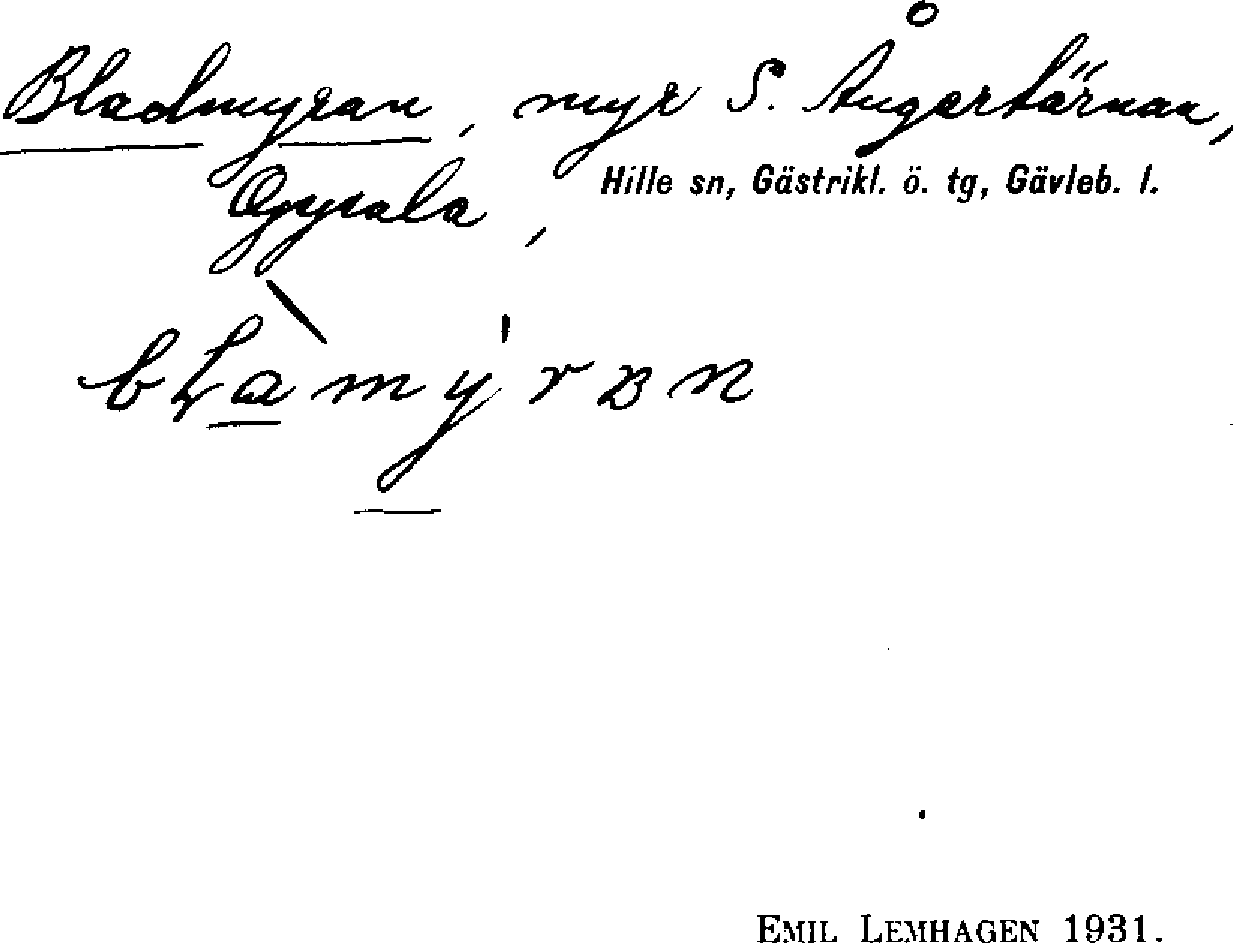 Bladmyran, myr S. Ångertärnan,
Oppsala, Hille sn, Gästrikl. ö. tg, Gävleb. l.
EMIL LEMHAGEN 1931.